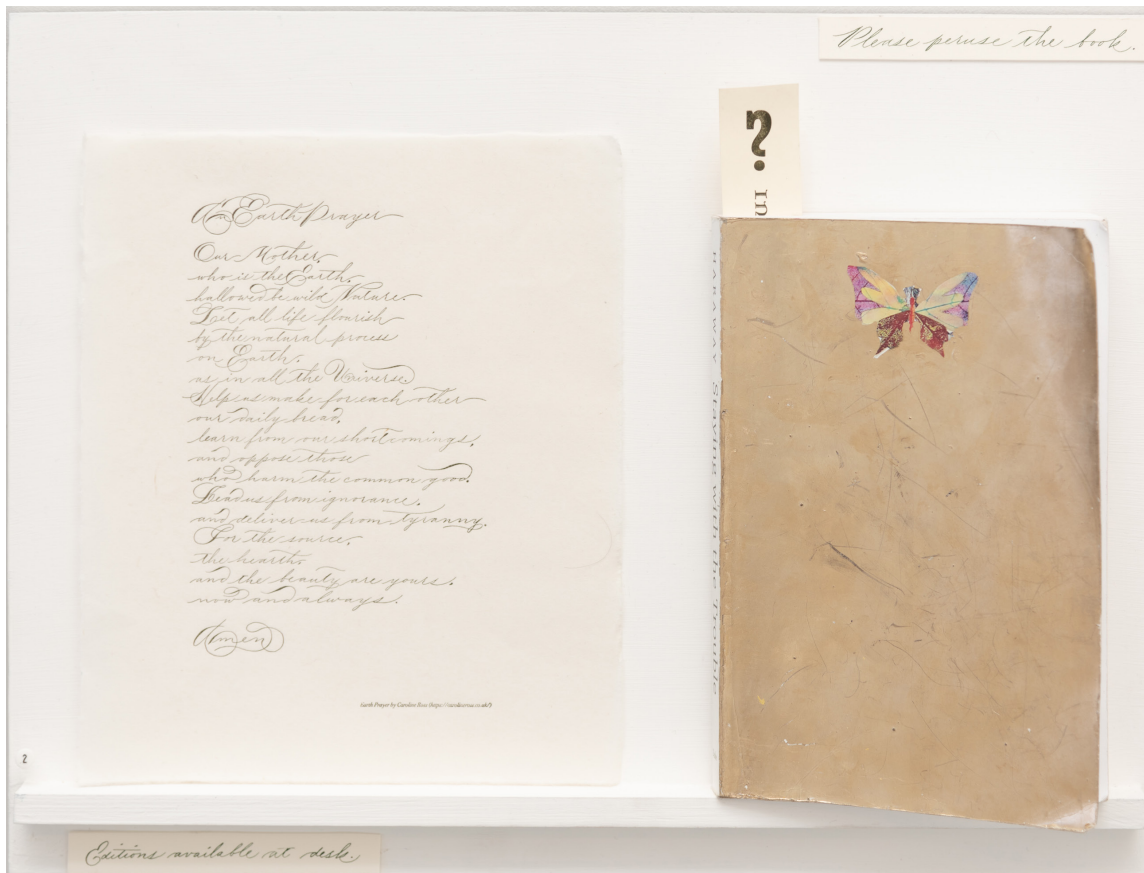 Please peruse the book.
?
in
An Earth Prayer
Our Mother,
who is the Earth,
hallowed be wild Nature.
Let all life flourish
by the natural process
on Earth,
as in all the Universe.
Help us make for each other
our daily bread,
learn from our shortcomings,
and oppose those
who harm the common good.
Lead us from ignorance,
and deliver us from tyranny.
For the source,
the hearth,
and the beauty are yours,
now and always.
Amen
Earth Prayer by Caroline Ross
HARAWAY Staying with the Trouble
2
Editions available at desk.